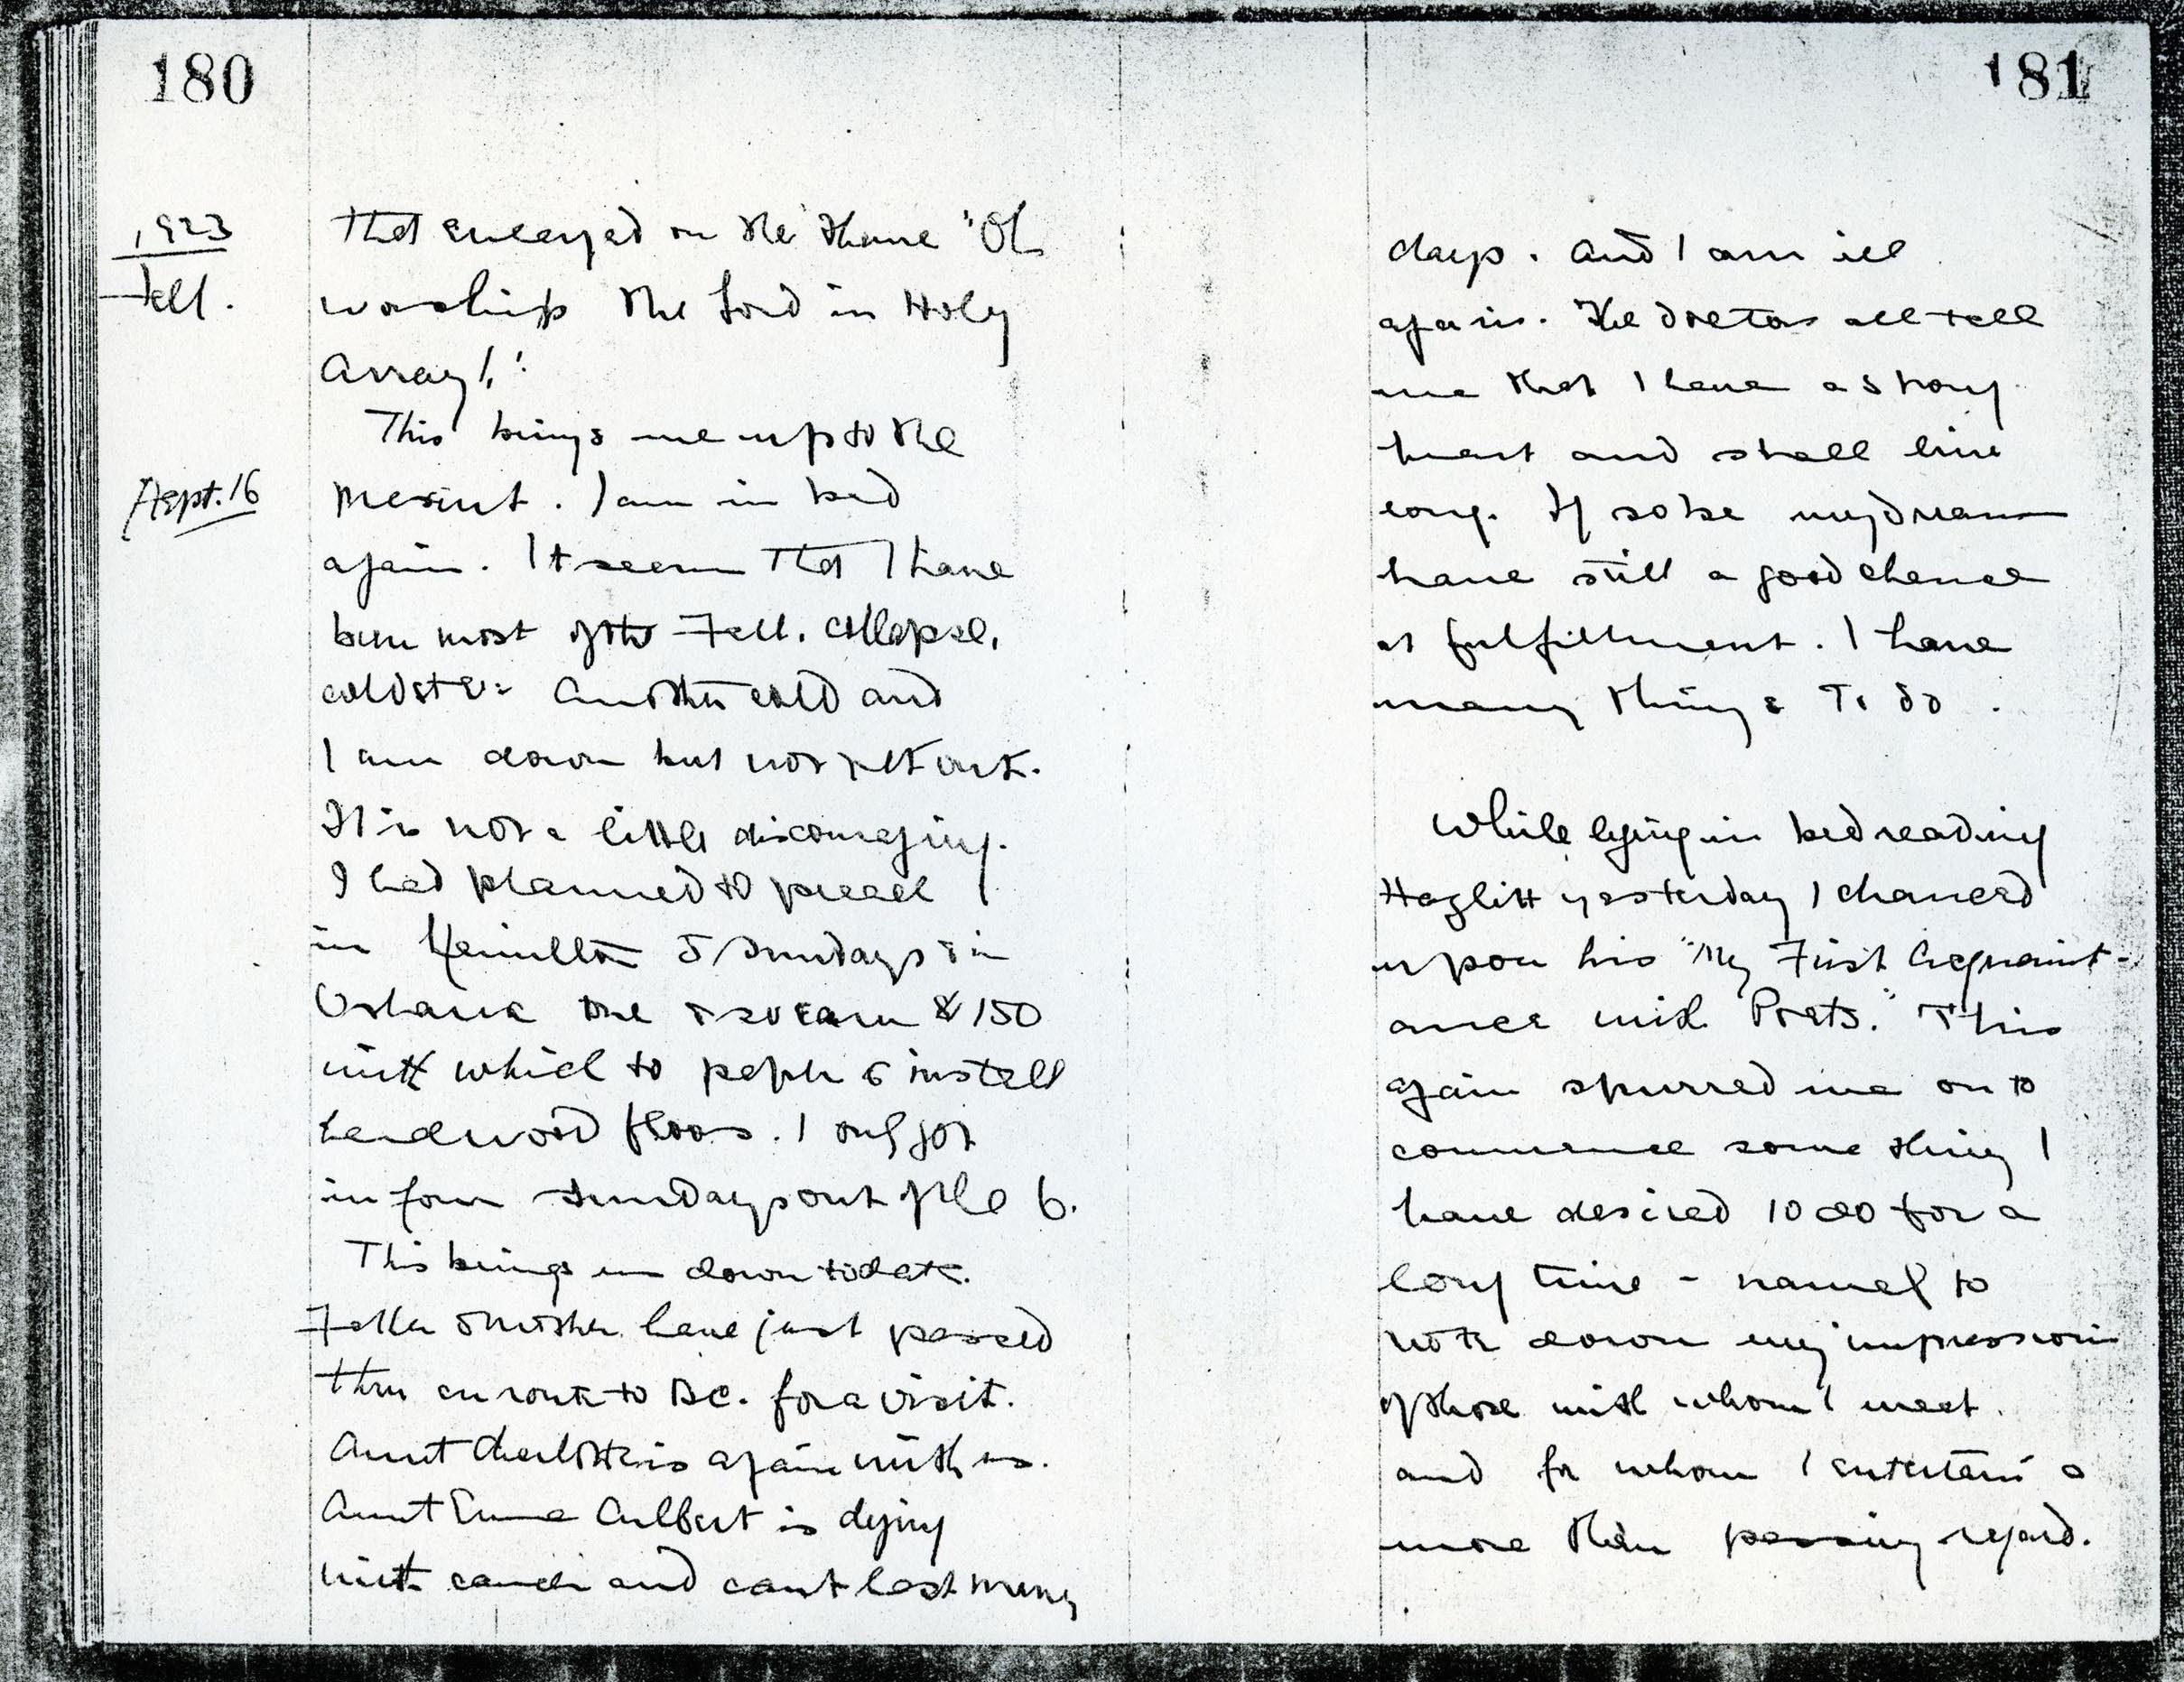 180
1923
Fall.
that enlarged on the theme "Oh
worship the Lord in Holy
Array!"
This brings me up to the
Sept. 16
present. I am in bed
again. It seems that I have
been most of the Fall. Collapse,
colds etc. Another cold and
I am down but not yet out.
It is not a little discouraging.
I had planned to preach
in Hamilton 5 Sundays & in
Oshawa one & so earn $150
with which to help to install
hardwood floors. I only got
in four Sundays out of the 6.
This brings us down to date.
Father & mother have just passed
thru en route to B.C. for a visit.
Aunt Charlotte is again with us.
Aunt Emma Culbert is dying
with cancer and cant last many
181
days. And I am ill
again. The doctors all tell
me that I have a strong
heart and shall live
long. If so be my dreams
have still a good chance
at fulfillment. I have
many things to do.
While lying in bed reading
Hazlitt yesterday I chanced
upon his "My First Acquaint-
ance with Poets." This
again spurred me on to
commence some thing I
have desired to do for a
long time - namely to
note down my impressions
of those with whom I meet
and for whom I entertain a
more than passing regard.